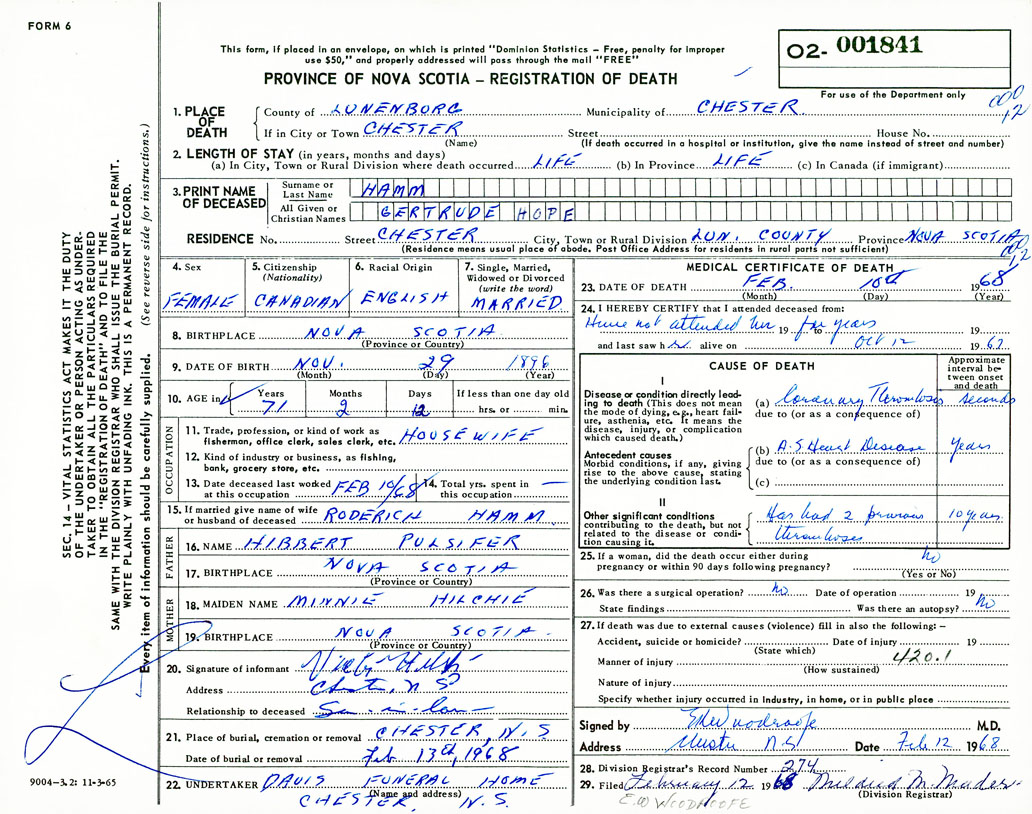 FORM 6
This form, if placed in an envelope, on which is printed "Dominion Statistics – Free, penalty for improper
use $50," and properly addressed will pass through the mail "FREE"
PROVINCE OF NOVA SCOTIA – REGISTRATION OF DEATH
02- 001841
For use of the Department only
1. PLACE OF DEATH
County of LUNENBORG Municipality of CHESTER
If in City or Town CHESTER Street House No.
(Name) (If death occurred in a hospital or institution, give the name instead of street and number)
2. LENGTH OF STAY (in years, months and days)
(a) In City, Town or Rural Division where death occurred LIFE (b) In Province LIFE (c) In Canada (if immigrant)
3. PRINT NAME OF DECEASED
Surname or Last Name HAMM
All Given or Christian Names GERTRUDE HOPE
RESIDENCE No. Street CHESTER City, Town or Rural Division LUN. COUNTY Province NOVA SCOTIA
(Residence means usual place of abode. Post Office Address for residents in rural parts not sufficient)
4. Sex FEMALE
5. Citizenship (Nationality) CANADIAN
6. Racial Origin ENGLISH
7. Single, Married, Widowed or Divorced (write the word) MARRIED
8. BIRTHPLACE NOVA SCOTIA
(Province or Country)
9. DATE OF BIRTH NOV. 29 1896
(Month) (Day) (Year)
10. AGE in Years 71 Months 2 Days 12 If less than one day old hrs. or min.
OCCUPATION
11. Trade, profession, or kind of work as fisherman, office clerk, sales clerk, etc. HOUSEWIFE
12. Kind of industry or business, as fishing, bank, grocery store, etc.
13. Date deceased last worked at this occupation FEB 10/68
14. Total yrs. spent in this occupation —
15. If married give name of wife or husband of deceased RODERICH HAMM
FATHER
16. NAME HIBBERT PULSIFER
17. BIRTHPLACE NOVA SCOTIA
(Province or Country)
MOTHER
18. MAIDEN NAME MINNIE HILCHIE
19. BIRTHPLACE NOVA SCOTIA
(Province or Country)
20. Signature of informant
Address N.S.
Relationship to deceased Son-in-law
21. Place of burial, cremation or removal CHESTER, N.S.
Date of burial or removal Feb 13th, 1968
22. UNDERTAKER DAVIS FUNERAL HOME
(Name and address)
CHESTER, N.S.
MEDICAL CERTIFICATE OF DEATH
23. DATE OF DEATH FEB. 10th 1968
(Month) (Day) (Year)
24. I HEREBY CERTIFY that I attended deceased from:
Have not attended her 19 for years 19
and last saw her alive on Oct 12 1967
CAUSE OF DEATH
Approximate interval between onset and death
I
Disease or condition directly leading to death (This does not mean the mode of dying, e.g., heart failure, asthenia, etc. It means the disease, injury, or complication which caused death.)
(a) Coronary Thrombosis seconds
due to (or as a consequence of)
Antecedent causes
Morbid conditions, if any, giving rise to the above cause, stating the underlying condition last.
(b) A.S Heart Disease years
due to (or as a consequence of)
(c)
II
Other significant conditions contributing to the death, but not related to the disease or condition causing it.
Has had 2 previous thromboses 10 years
25. If a woman, did the death occur either during pregnancy or within 90 days following pregnancy? no
(Yes or No)
26. Was there a surgical operation? no Date of operation 19
State findings Was there an autopsy? no
27. If death was due to external causes (violence) fill in also the following: –
Accident, suicide or homicide? Date of injury 19
(State which)
Manner of injury 420.1
(How sustained)
Nature of injury
Specify whether injury occurred in industry, in home, or in public place
Signed by M.D.
Address Chester N.S Date Feb 12 1968
28. Division Registrar's Record Number 274
29. Filed February 12 1968 Mildred M. Mader
(Division Registrar)
E.W WOODROOFE
SEC. 14 – VITAL STATISTICS ACT MAKES IT THE DUTY
OF THE UNDERTAKER OR PERSON ACTING AS UNDER-
TAKER TO OBTAIN ALL THE PARTICULARS REQUIRED
IN THE "REGISTRATION OF DEATH" AND TO FILE THE
SAME WITH THE DIVISION REGISTRAR WHO SHALL ISSUE THE BURIAL PERMIT.
WRITE PLAINLY WITH UNFADING INK. THIS IS A PERMANENT RECORD.
Every item of information should be carefully supplied. (See reverse side for instructions.)
9004–3.2: 11-3-65